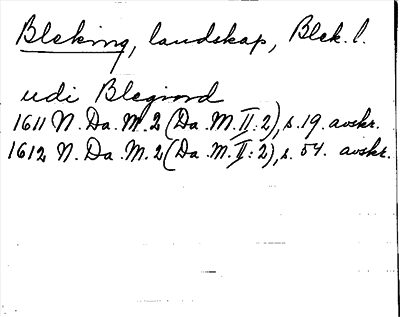 Bleking, landskap, Blek. l.
udi Blegind
1611 N. Da. M. 2 (Da. M. II: 2), s. 19. avskr.
1612 N. Da. M. 2 (Da. M. II: 2), s. 54. avskr.